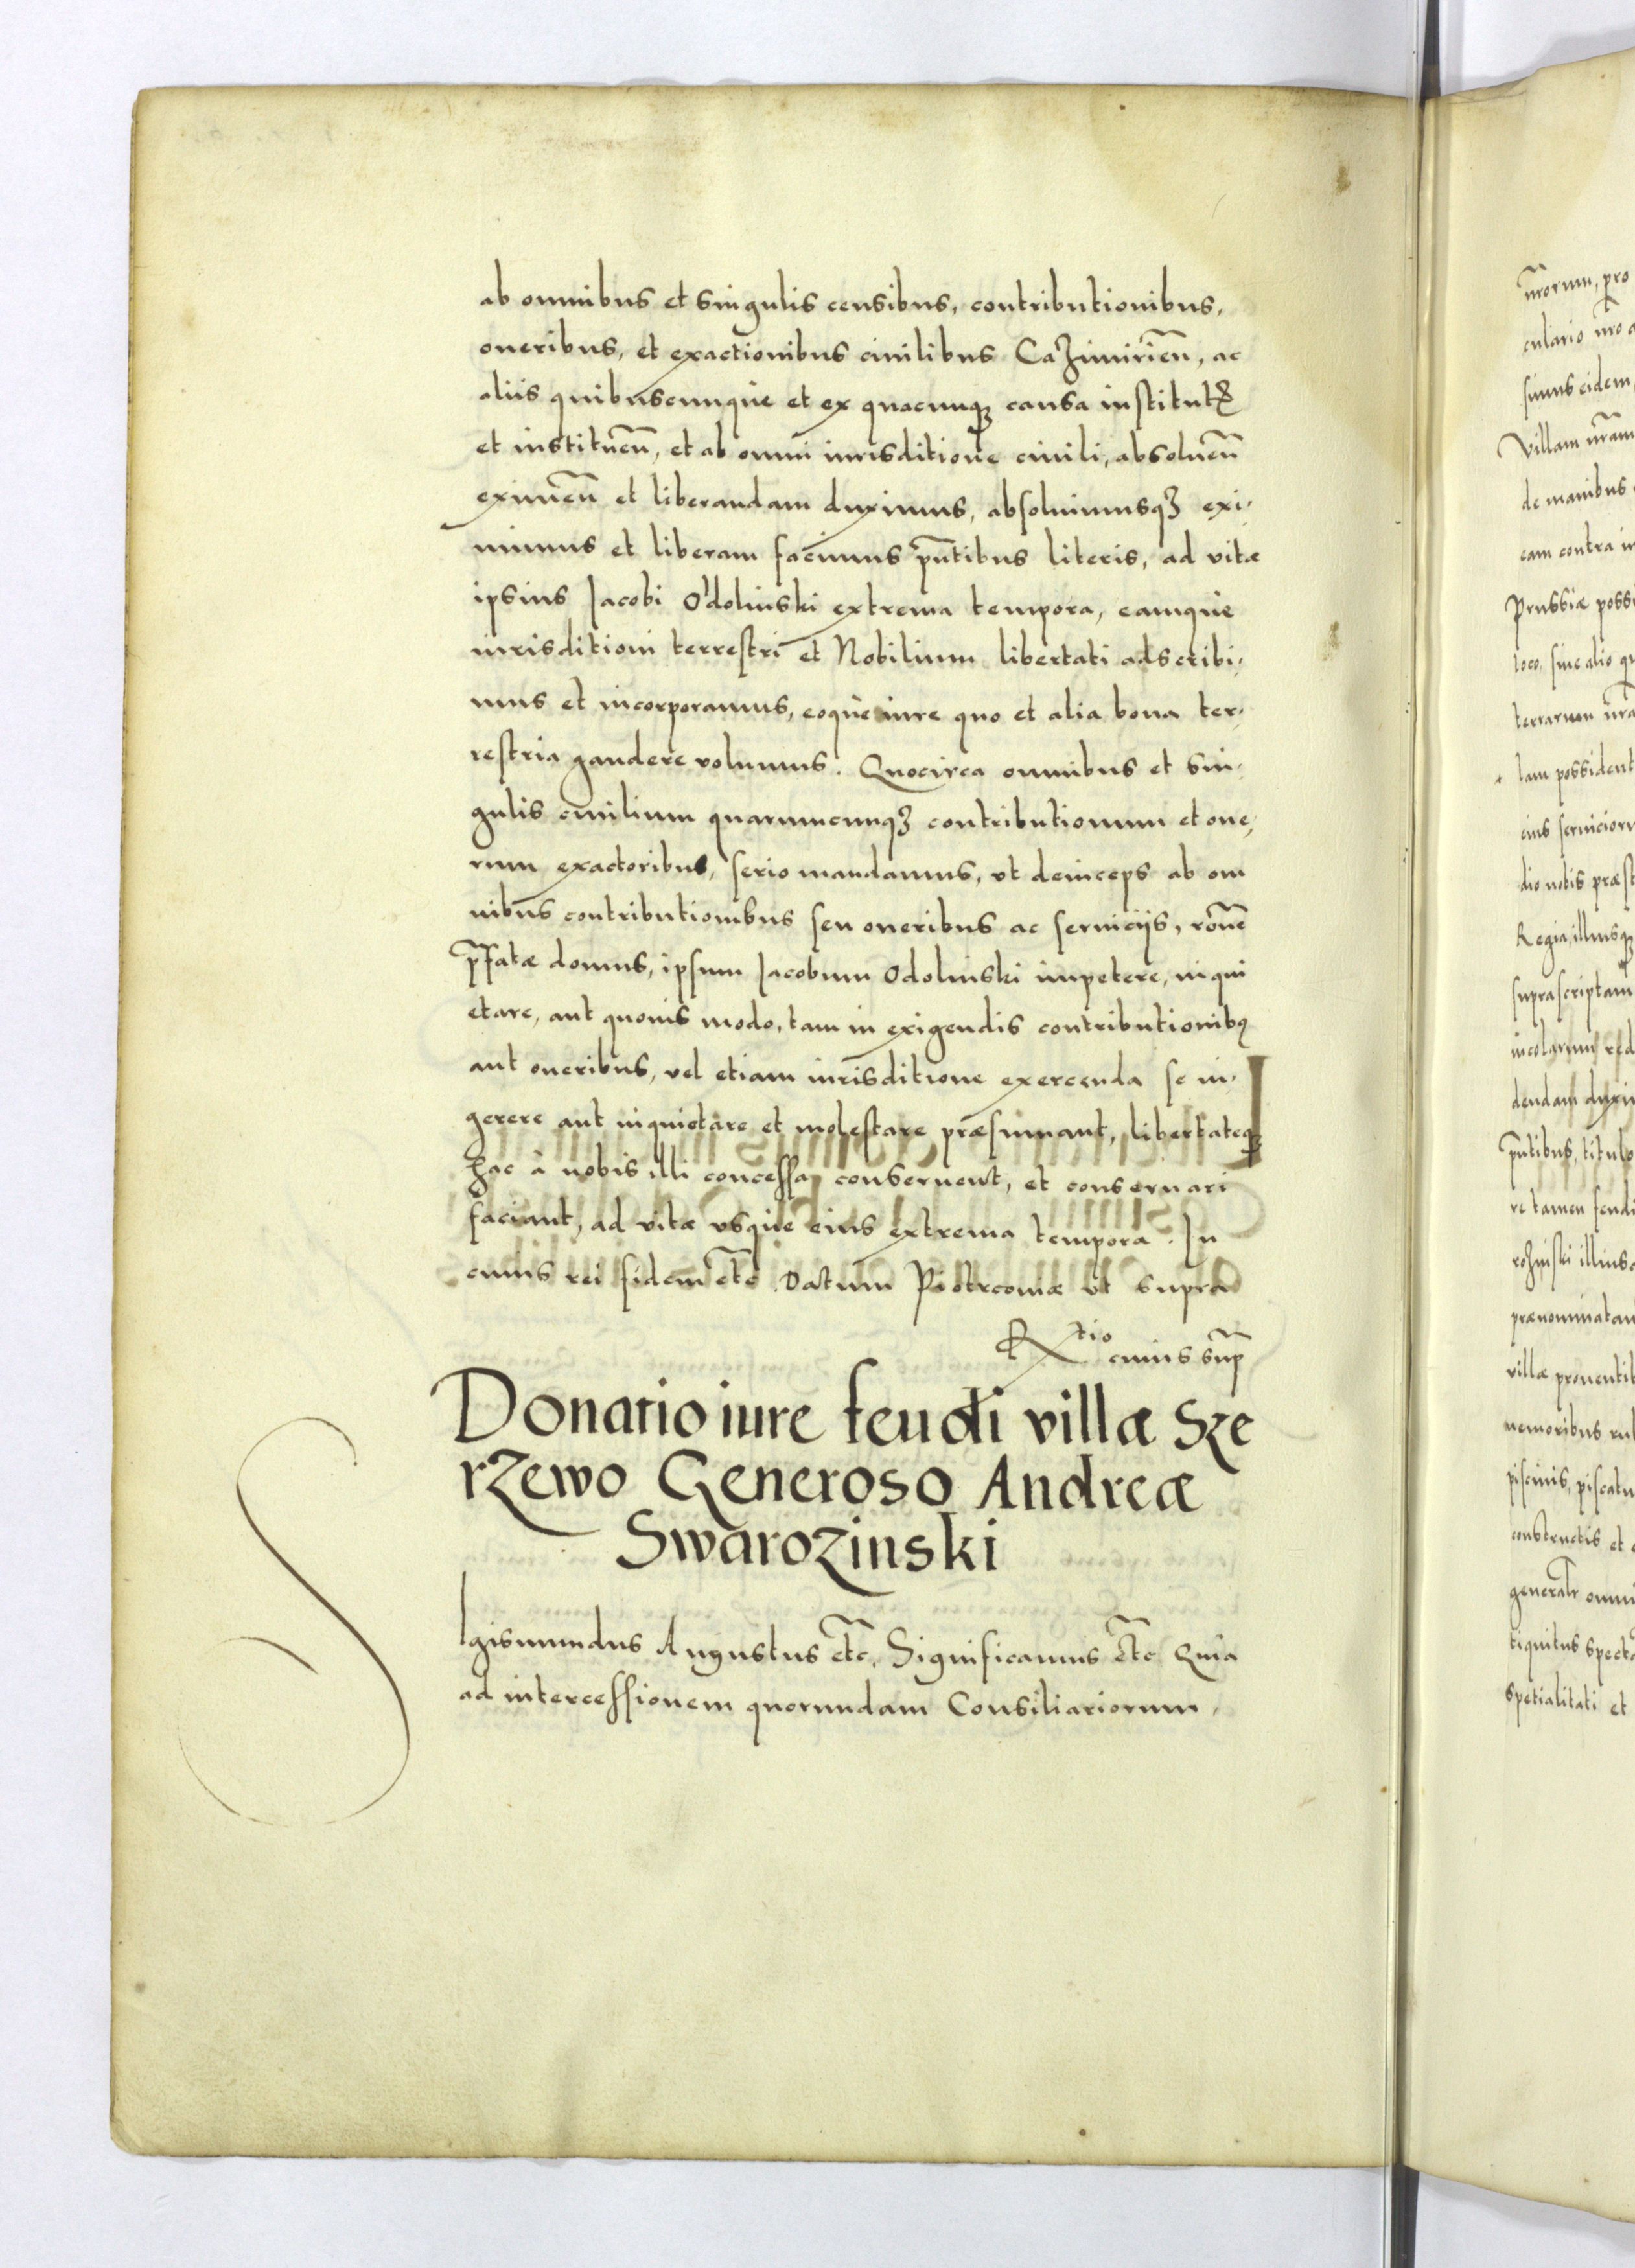 ab omnibus et singulis censibus, contributionibus,
oneribus, et exactionibus ciuilibus Cazimirien̄, ac
aliis quibuscunque et ex quacunqꝫ causa institutꝭ
et instituen̄, et ab omni iurisditione ciuili, absoluen̄
eximen̄ et liberandam duximus, absoluimusqꝫ exi-
mimus et liberam facimus pn̄tibus literis, ad vitæ
ipsius Jacobi Odolinski extrema tempora, eamque
iurisditioni terrestri et Nobilium libertati adscribi-
mus et incorporamus, eoque iure quo et alia bona ter-
restria gaudere volumus. Quocirca omnibus et sin-
gulis ciuilium quarumcunqꝫ contributionum et one-
rum exactoribus, serio mandamus, vt deinceps ab om
nibus contributionibus seu oneribus ac seruiciis, ron̄e
p̄fatæ domus, ipsum Jacobum Odolinski impetere, inqui
etare, aut quouis modo, tam in exigendis contributionibꝰ
aut oneribus, vel etiam iurisditione exercenda se in-
gerere aut inquietare et molestare præsumant, libertateqꝫ
hac à nobis illi concessa conseruent, et conseruari
faciant, ad vitæ vsque eius extrema tempora. In
cuius rei fidem etc̄ Datum Piotrcouiæ vt supra
Rtio cuius sup̄
Donatio iure feudi villæ Sze
rzewo Generoso Andreæ
Swarozinski
SIgismundus Augustus etc̄. Significamus etc̄ Quia
ad intercessionem quorundam Consiliariorum
nr̄orum, pro
culario nr̄o
simus eidem
Villam nr̄am
de manibus
eam contra
Prussiæ poss
loco, siue alio
terrarum
lam possident
eius seruicior
dio nobis præst
Regia, illiusqꝫ
suprascriptam
incolarum red
dendam duxi
pn̄tibus, titulo
re tamen feudi
rozinski illius
prænominatam
villæ prouenti
nemoribus rub
piscinis, piscatu
constructis et
generalr̄ omni
tiquitus spect
spetialitati et